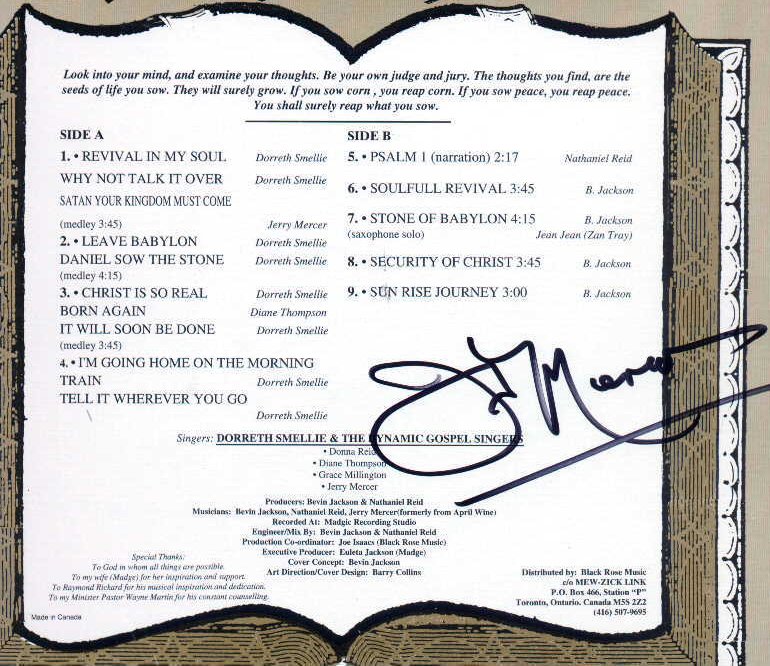 Look into your mind, and examine your thoughts. Be your own judge and jury. The thoughts you find, are the
seeds of life you sow. They will surely grow. If you sow corn , you reap corn. If you sow peace, you reap peace.
You shall surely reap what you sow.
SIDE A
1. • REVIVAL IN MY SOUL Dorreth Smellie
WHY NOT TALK IT OVER Dorreth Smellie
SATAN YOUR KINGDOM MUST COME
(medley 3:45) Jerry Mercer
2. • LEAVE BABYLON Dorreth Smellie
DANIEL SOW THE STONE Dorreth Smellie
(medley 4:15)
3. • CHRIST IS SO REAL Dorreth Smellie
BORN AGAIN Diane Thompson
IT WILL SOON BE DONE Dorreth Smellie
(medley 3:45)
4. • I'M GOING HOME ON THE MORNING
TRAIN Dorreth Smellie
TELL IT WHEREVER YOU GO
Dorreth Smellie
SIDE B
5. • PSALM 1 (narration) 2:17 Nathaniel Reid
6. • SOULFULL REVIVAL 3:45 B. Jackson
7. • STONE OF BABYLON 4:15 B. Jackson
(saxophone solo) Jean Jean (Zan Tray)
8. • SECURITY OF CHRIST 3:45 B. Jackson
9. • SUN RISE JOURNEY 3:00 B. Jackson
J Mercer
Singers: DORRETH SMELLIE & THE DYNAMIC GOSPEL SINGERS
• Donna Reid
• Diane Thompson
• Grace Millington
• Jerry Mercer
Producers: Bevin Jackson & Nathaniel Reid
Musicians: Bevin Jackson, Nathaniel Reid, Jerry Mercer(formerly from April Wine)
Recorded At: Madgic Recording Studio
Engineer/Mix By: Bevin Jackson & Nathaniel Reid
Production Co-ordinator: Joe Isaacs (Black Rose Music)
Executive Producer: Euleta Jackson (Madge)
Cover Concept: Bevin Jackson
Art Direction/Cover Design: Barry Collins
Special Thanks:
To God in whom all things are possible.
To my wife (Madge) for her inspiration and support.
To Raymond Rickard for his musical inspiration and dedication.
To my Minister Pastor Wayne Martin for his constant counselling.
Distributed by: Black Rose Music
c/o MEW-ZICK LINK
P.O. Box 466, Station "P"
Toronto, Ontario. Canada M5S 2Z2
(416) 507-9695
Made in Canada